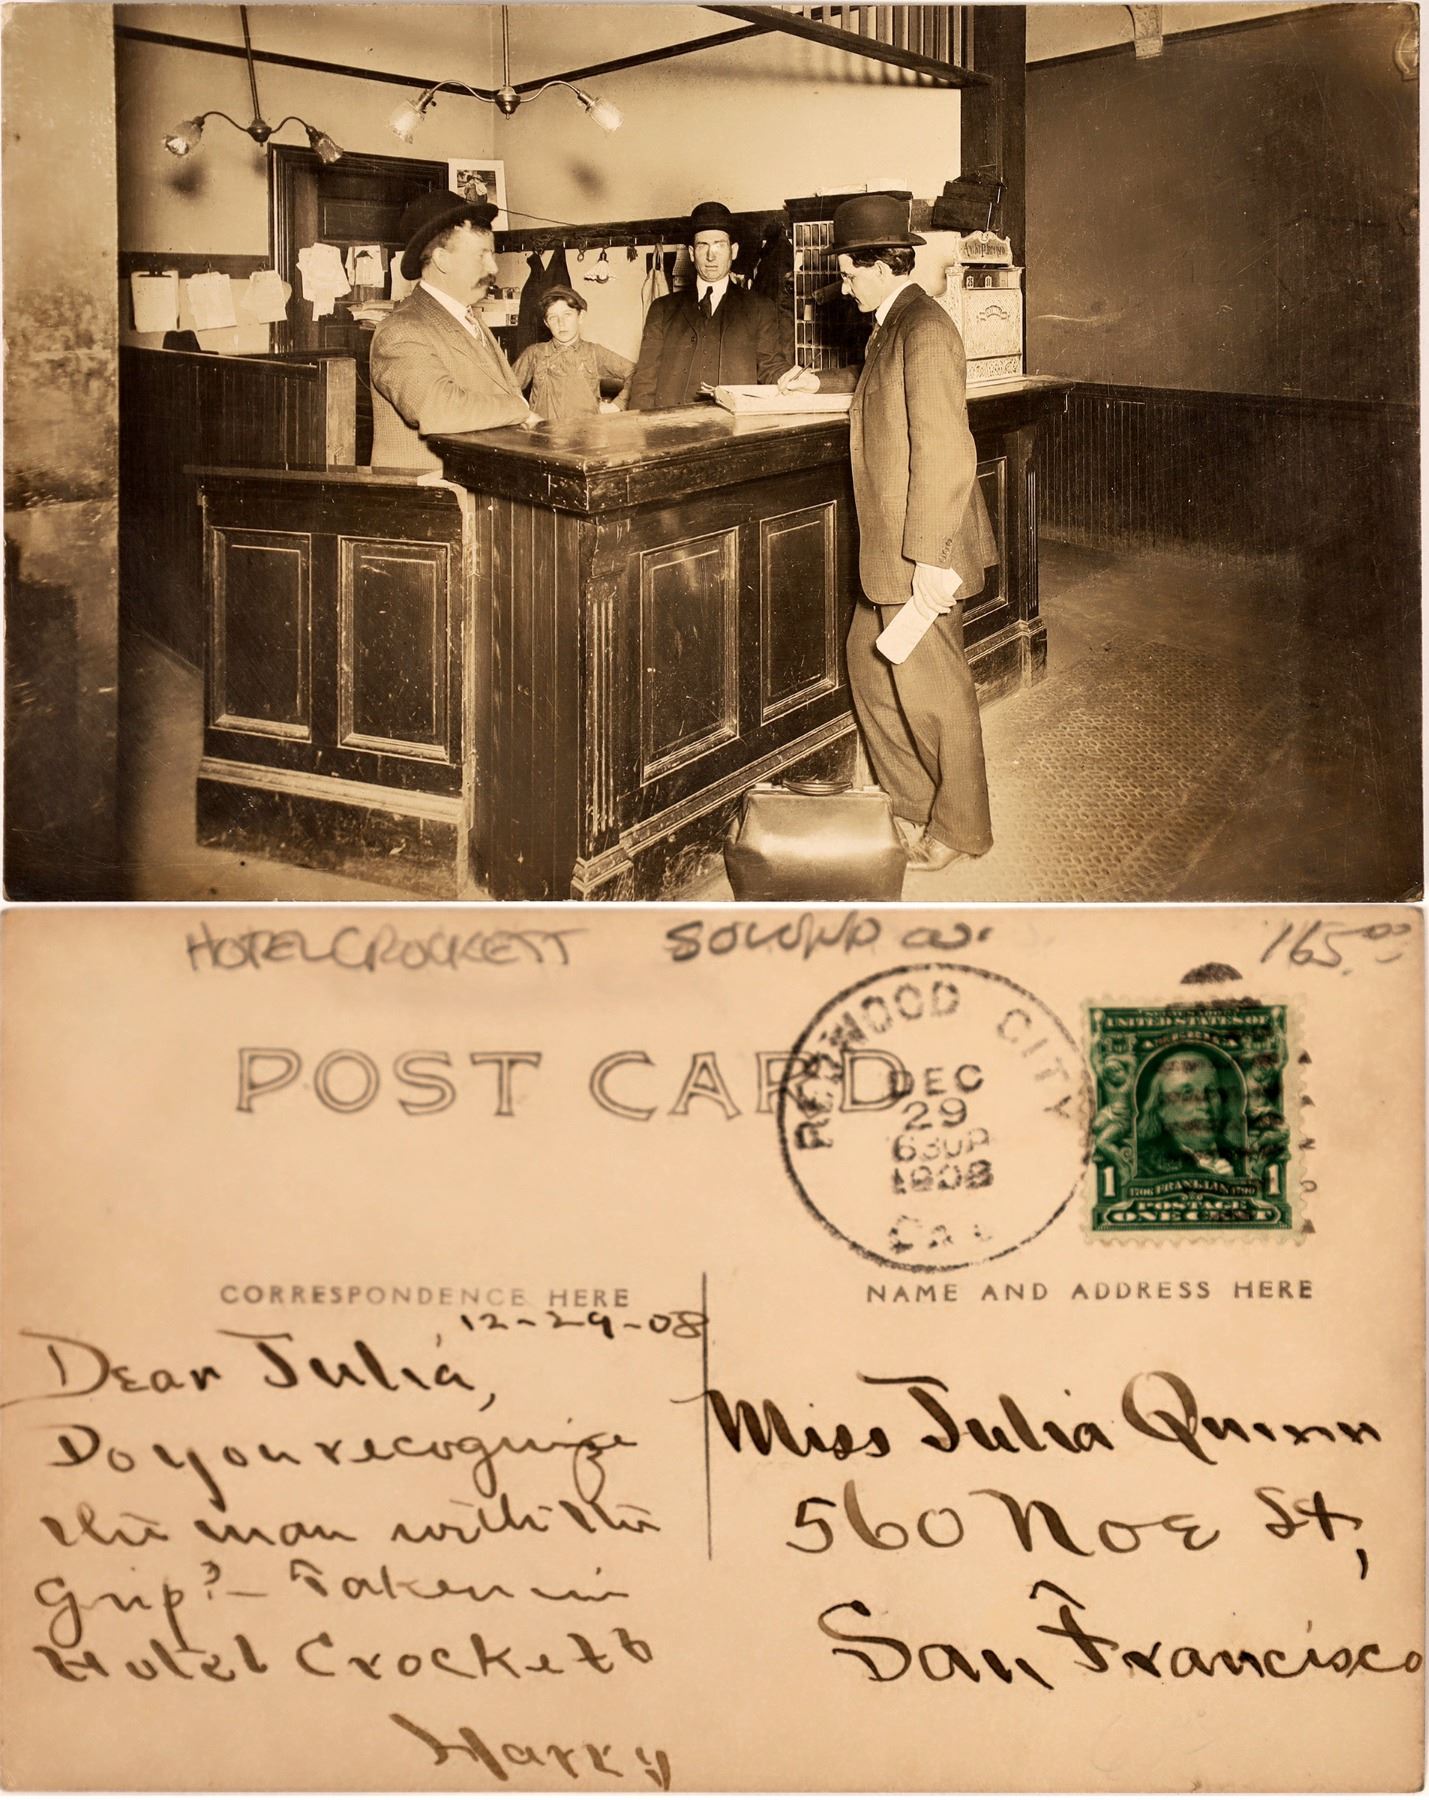 AMOUNT PURCHASED
HOTEL CROCKETT SOLONO CO. 165.00
POST CARD
REDWOOD CITY
DEC
29
630P
1908
CAL
UNITED STATES OF
AMERICA
1 1706 FRANKLIN 1790 1
POSTAGE
ONE CENT
CORRESPONDENCE HERE
NAME AND ADDRESS HERE
12-29-08
Dear Julia,
Do you recognize
the man with the
Grip? - Taken in
Hotel Crockett
Harry
Miss Julia Quinn
560 Noe St,
San Francisco